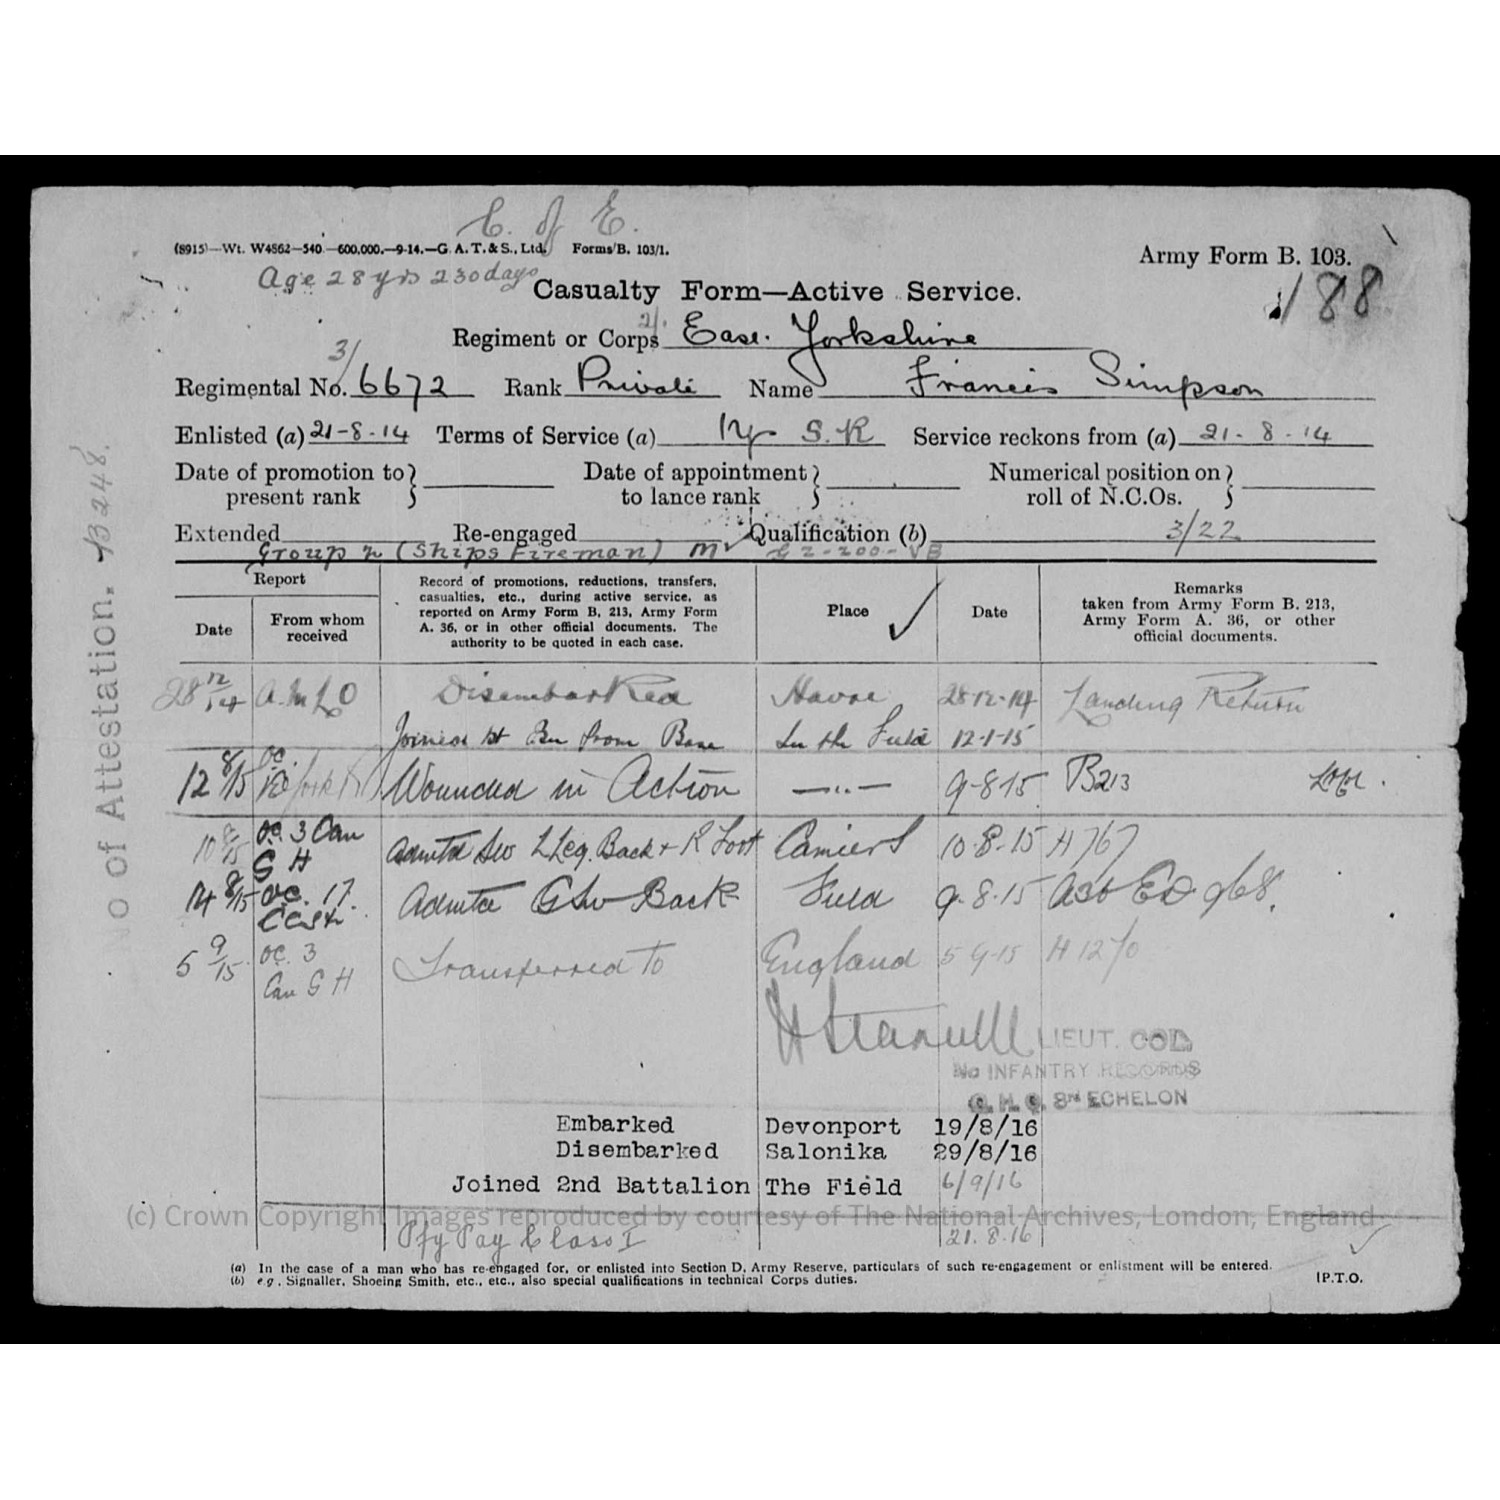 C. of E.
(8915)—Wt. W4562—540.—600,000.—9-14.—G. A. T. & S., Ltd. Forms/B. 103/1.
Army Form B. 103.
Age 28 yrs 230 days
188
Casualty Form—Active Service.
Regiment or Corps East. Yorkshire
3/
Regimental No. 6672 Rank Private Name Francis Simpson
Enlisted (a) 21-8-14 Terms of Service (a) 1 yr S.R Service reckons from (a) 21-8-14
Date of promotion to present rank } Date of appointment to lance rank } Numerical position on roll of N.C.Os. }
Extended Re-engaged Qualification (b) 3/22
Group 2 (Ships Fireman) M
No of Attestation. B248.
Report
Date
From whom received
Record of promotions, reductions, transfers, casualties, etc., during active service, as reported on Army Form B. 213, Army Form A. 36, or in other official documents. The authority to be quoted in each case.
Place
Date
Remarks taken from Army Form B. 213, Army Form A. 36, or other official documents.
28 12/14 A.M.L.O Disembarked Havre 28-12-14 Landing Return
Joined 1st Bn from Base In the Field 12-1-15
12 8/15 OC York R Wounded in Action —..— 9-8-15 B213
10 8/15 OC. 3 Can G H Admtd Sw L Leg. Back + R Foot Camiers 10-8-15 H 767
14 8/15 OC. 17. CCStn Admtd GSw Back Field 9-8-15 A36 968.
5 9/15 OC. 3 Can G H Transferred to England 5-9-15 H 1270
LIEUT. COL
No INFANTRY RECORDS
G. H. Q. 3RD ECHELON
Embarked Devonport 19/8/16
Disembarked Salonika 29/8/16
Joined 2nd Battalion The Field 6/9/16
(c) Crown Copyright Images reproduced by courtesy of The National Archives, London, England
Pfy Pay Class I 21.8.16
(a) In the case of a man who has re-engaged for, or enlisted into Section D, Army Reserve, particulars of such re-engagement or enlistment will be entered.
(b) e.g. Signaller, Shoeing Smith, etc., etc., also special qualifications in technical Corps duties.
[P.T.O.